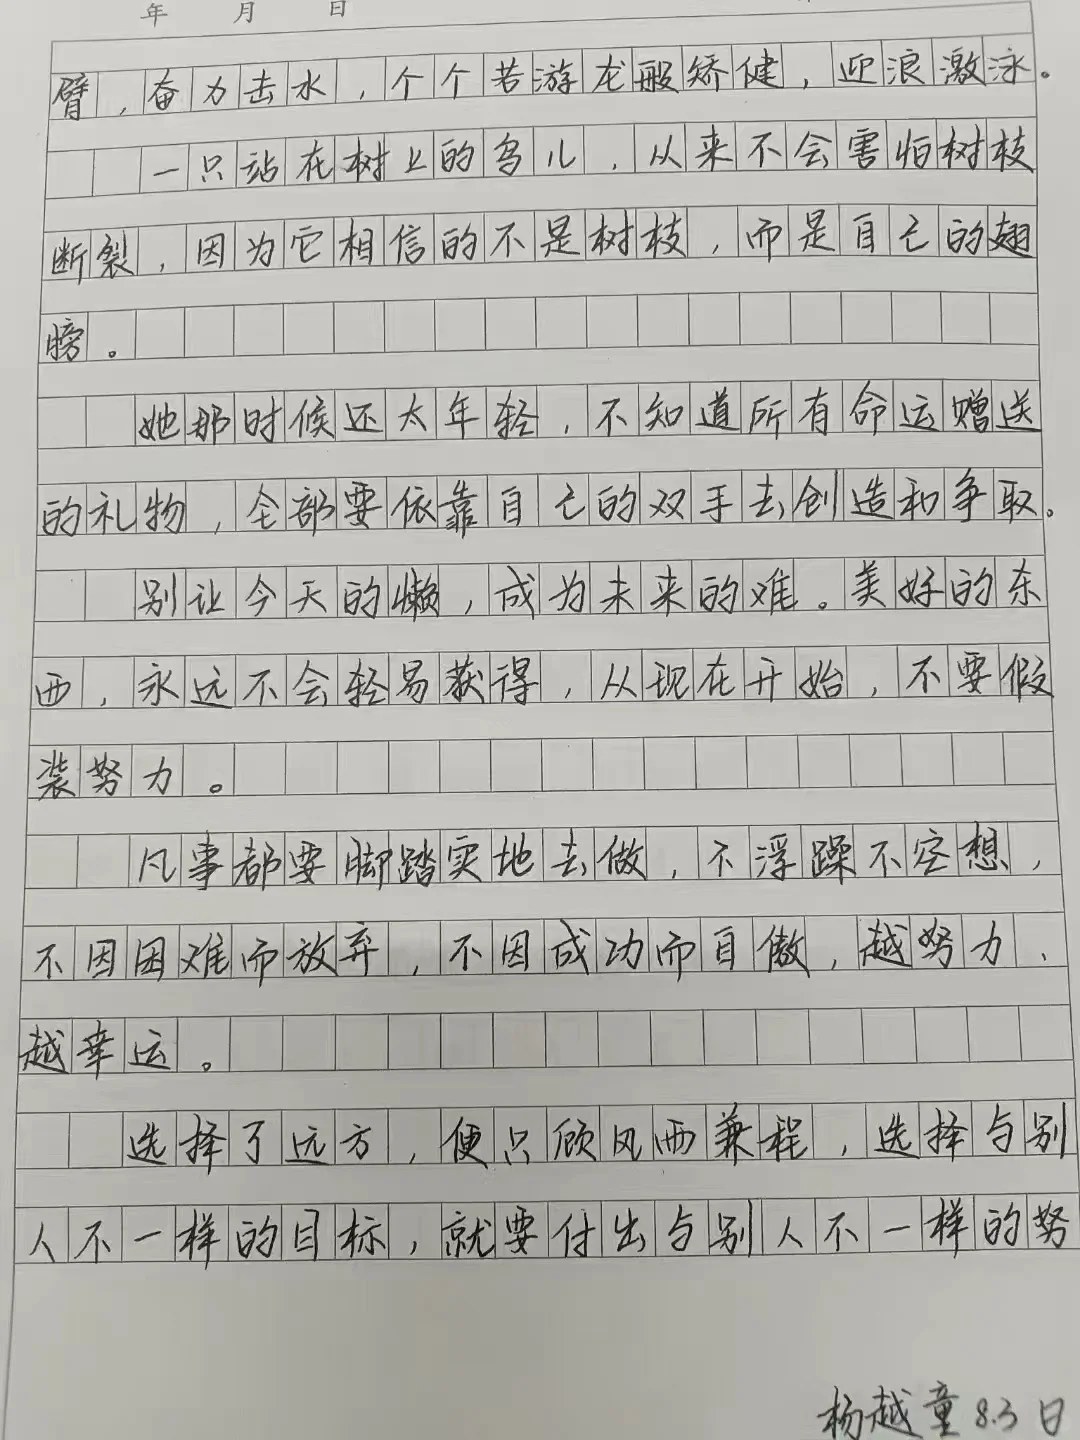 年 月 日
臂，奋力击水，个个若游龙般矫健，迎浪激泳。
一只站在树上的鸟儿，从来不会害怕树枝
断裂，因为它相信的不是树枝，而是自己的翅
膀。
她那时候还太年轻，不知道所有命运赠送
的礼物，全部要依靠自己的双手去创造和争取。
别让今天的懒，成为未来的难。美好的东
西，永远不会轻易获得，从现在开始，不要假
装努力。
凡事都要脚踏实地去做，不浮躁不空想，
不因困难而放弃，不因成功而自傲，越努力、
越幸运。
选择了远方，便只顾风雨兼程，选择与别
人不一样的目标，就要付出与别人不一样的努
杨越童 8.3 日